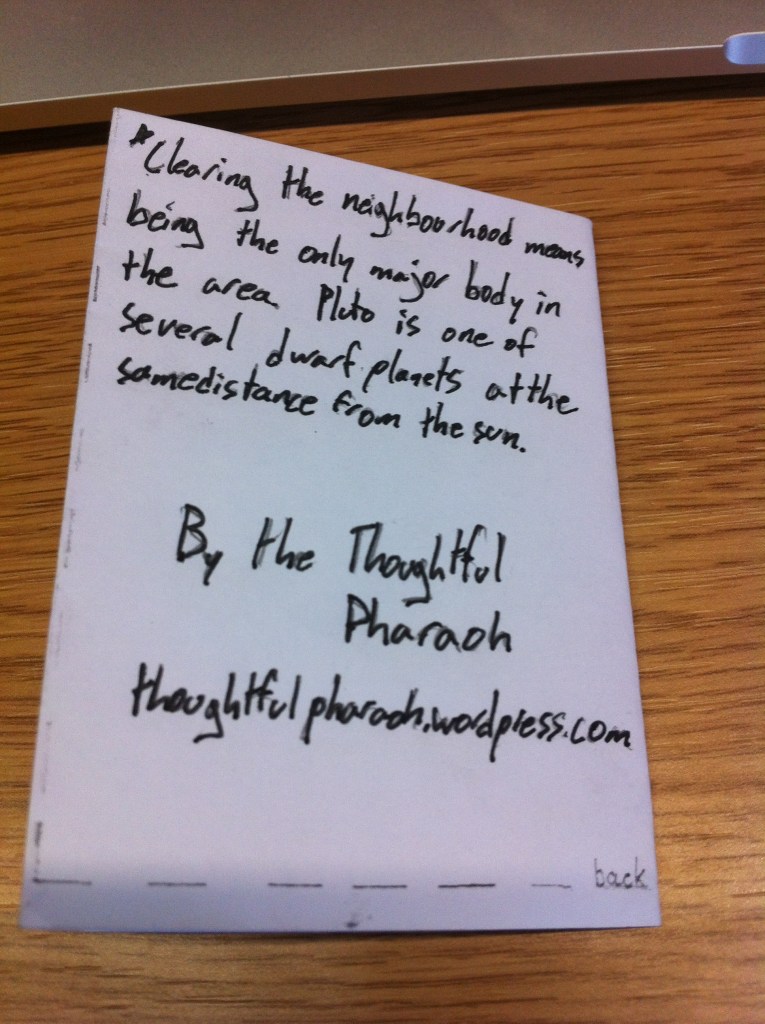 *Clearing the neighbourhood means
being the only major body in
the area. Pluto is one of
several dwarf planets at the
same distance from the sun.
By the Thoughtful
Pharaoh
thoughtfulpharaoh.wordpress.com
back